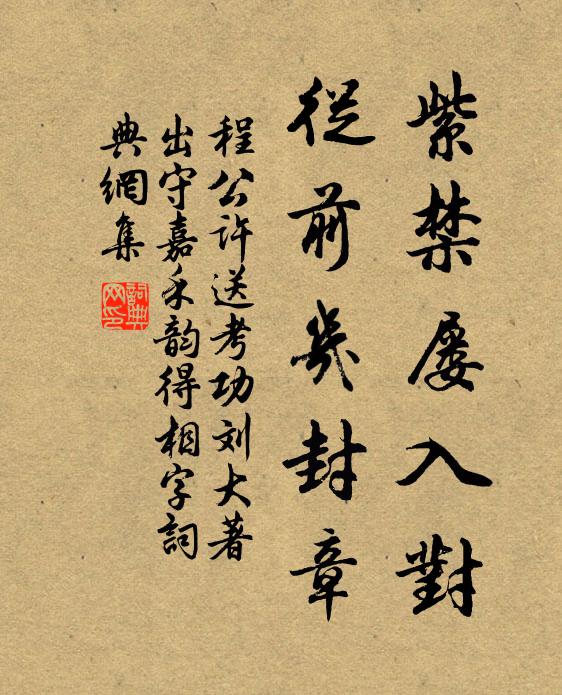 紫禁屡入對
從前幾封章
程公许送考功刘大著
出守嘉禾韵得相字詞
典網集
詞典网印